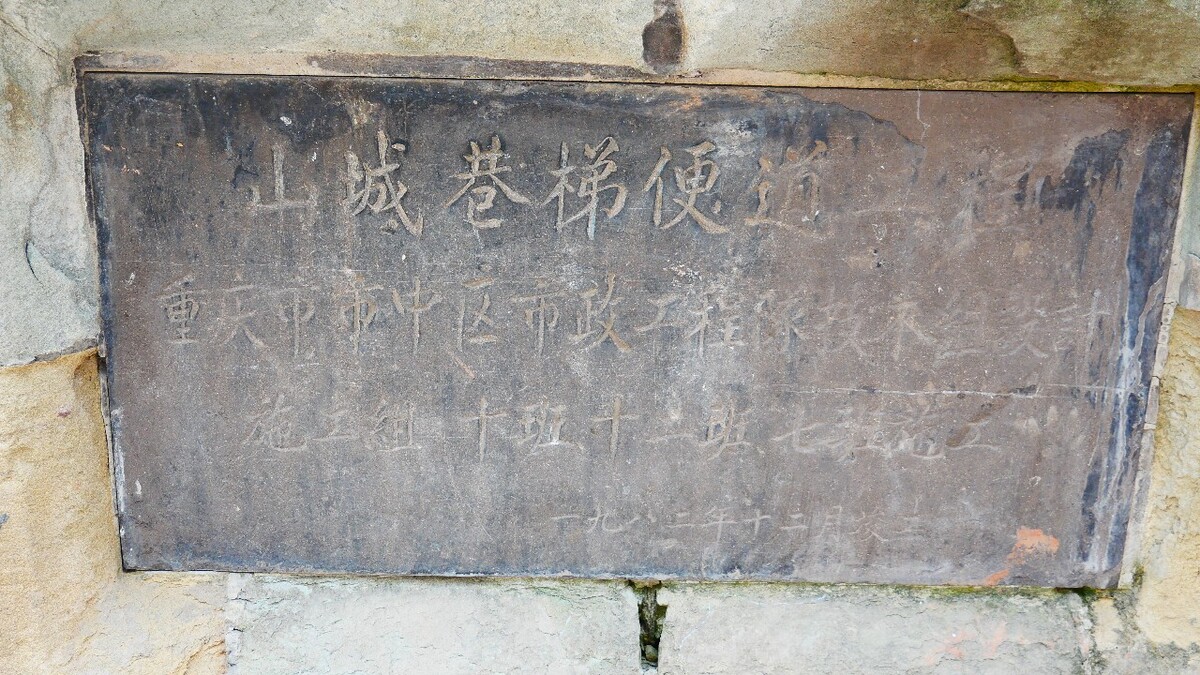 山城巷梯便道工程
重庆市市中区市政工程队技术组設計
施工組十班十二班七班施工
一九八二年十二月竣工